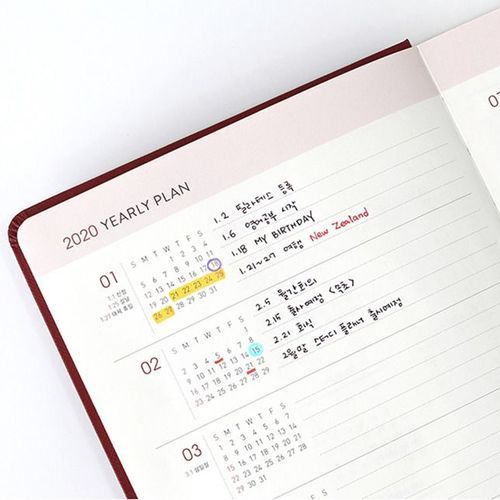 2020 YEARLY PLAN
01
1.1 신정
1.25 설날
1.27 대체 휴일
S M T W T F S
1 2 3 4
5 6 7 8 9 10 11
12 13 14 15 16 17 18
19 20 21 22 23 24 25
26 27 28 29 30 31
1.2 필라테스 등록
1.6 영어공부 시작
1.18 MY BIRTHDAY
1.21~27 여행 New Zealand
02
S M T W T F S
1
2 3 4 5 6 7 8
9 10 11 12 13 14 15
16 17 18 19 20 21 22
23 24 25 26 27 28 29
2.5 월간회의
2.15 출사예정 <목포>
2.21 회식
2월말 스터디 플래너 출시예정
03
3.1 삼일절
S M T W T F S
1 2 3 4 5 6 7
8 9 10 11 12 13 14
15 16 17 18 19 20 21
22 23 24 25 26 27 28
29 30 31
07